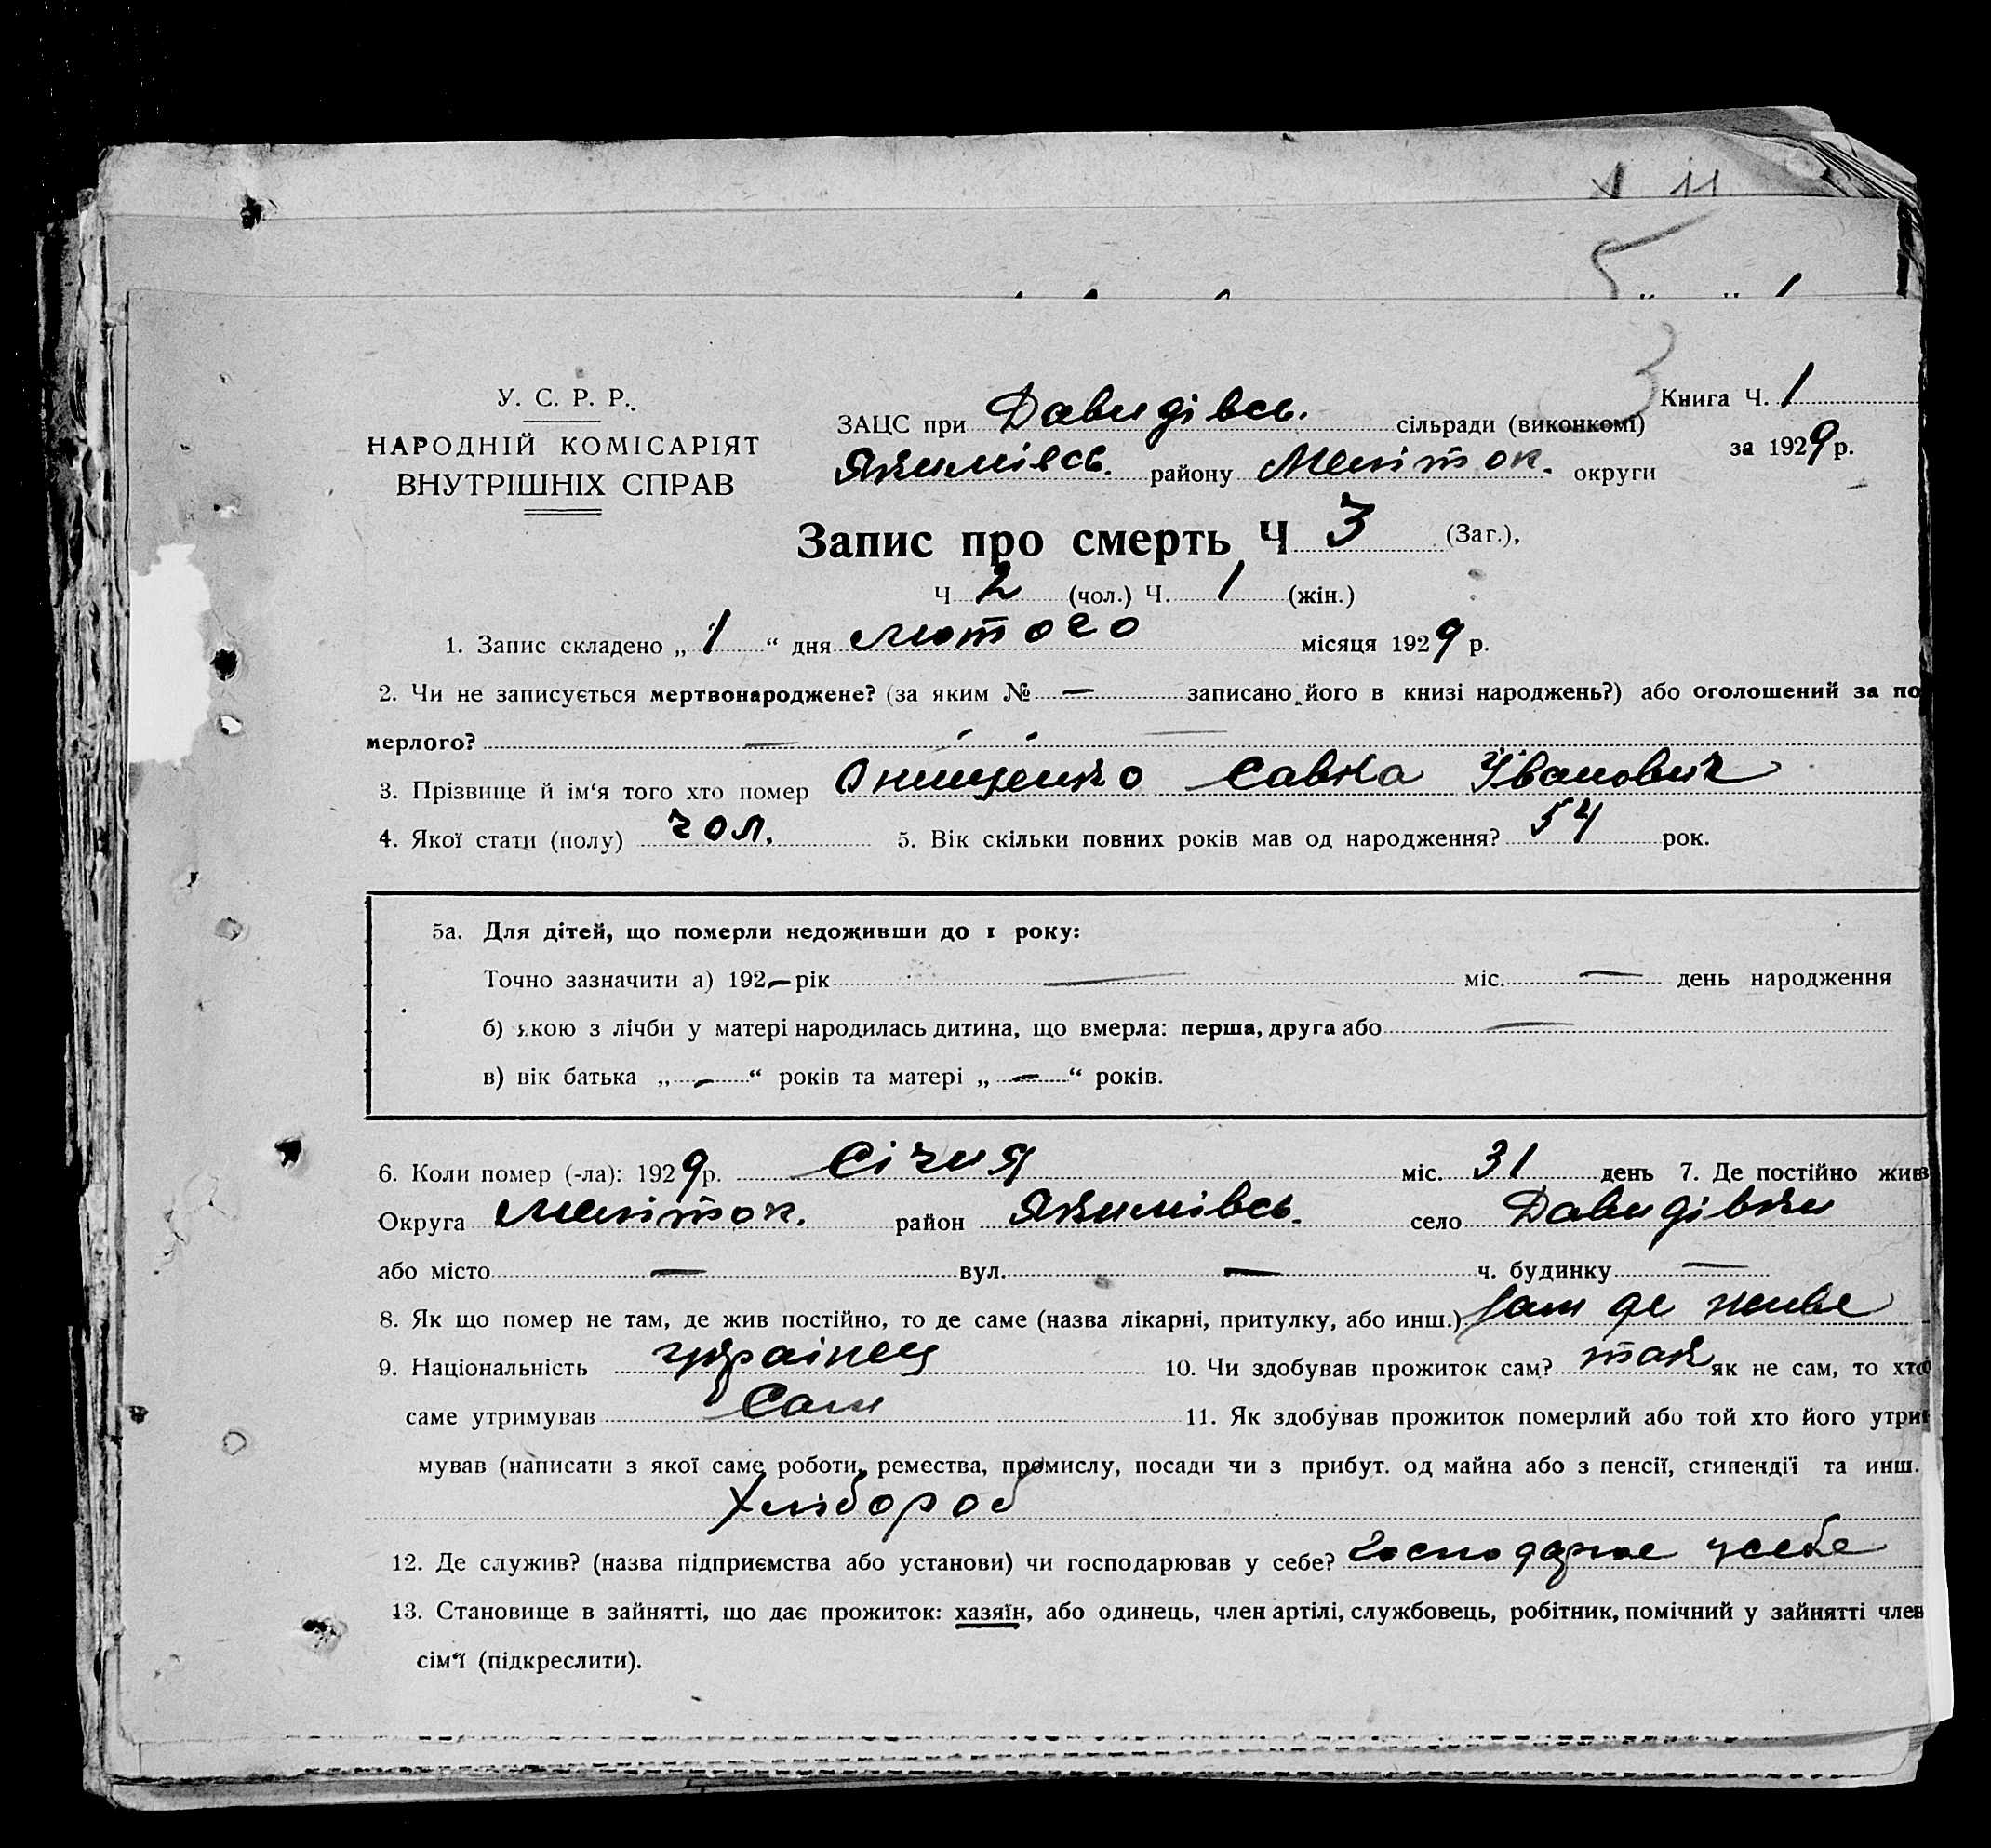 11
5
3
У. С. Р. Р.
НАРОДНІЙ КОМІСАРІЯТ
ВНУТРІШНІХ СПРАВ
Книга Ч. 1
за 1929 р.
ЗАЦС при Давидівсь. сільради (виконкомі)
Якимівсь. району Меліток. округи
Запис про смерть Ч 3 (Заг.),
Ч 2 (чол.) Ч. 1 (жін.)
1. Запис складено „ 1 “ дня лютого місяця 1929 р.
2. Чи не записується мертвонароджене? (за яким № — записано його в книзі народжень?) або оголошений за по
мерлого? —
3. Прізвище й ім‘я того хто помер Онищенко Савка Іванович
4. Якої стати (полу) чол. 5. Вік скільки повних років мав од народження? 54 рок.
5а. Для дітей, що померли недоживши до 1 року:
Точно зазначити а) 192— рік — міс. — день народження
б) якою з лічби у матері народилась дитина, що вмерла: перша, друга або —
в) вік батька „ — “ років та матері „ — “ років.
6. Коли помер (-ла): 1929 р. Січня міс. 31 день 7. Де постійно жив
Округа Меліток. район Якимівсь. село Давидівки
або місто — вул. — ч. будинку —
8. Як що помер не там, де жив постійно, то де саме (назва лікарні, притулку, або инш.) Там де живе
9. Національність українец 10. Чи здобував прожиток сам? так як не сам, то хто
саме утримував Сам 11. Як здобував прожиток померлий або той хто його утри
мував (написати з якої саме роботи, ремества, промислу, посади чи з прибут. од майна або з пенсії, стипендії та инш.
Хлібороб
12. Де служив? (назва підприємства або установи) чи господарював у себе? Господарює усебе
13. Становище в зайнятті, що дає прожиток: хазяїн, або одинець, член артілі, службовець, робітник, помічний у зайнятті член
сім‘ї (підкреслити).